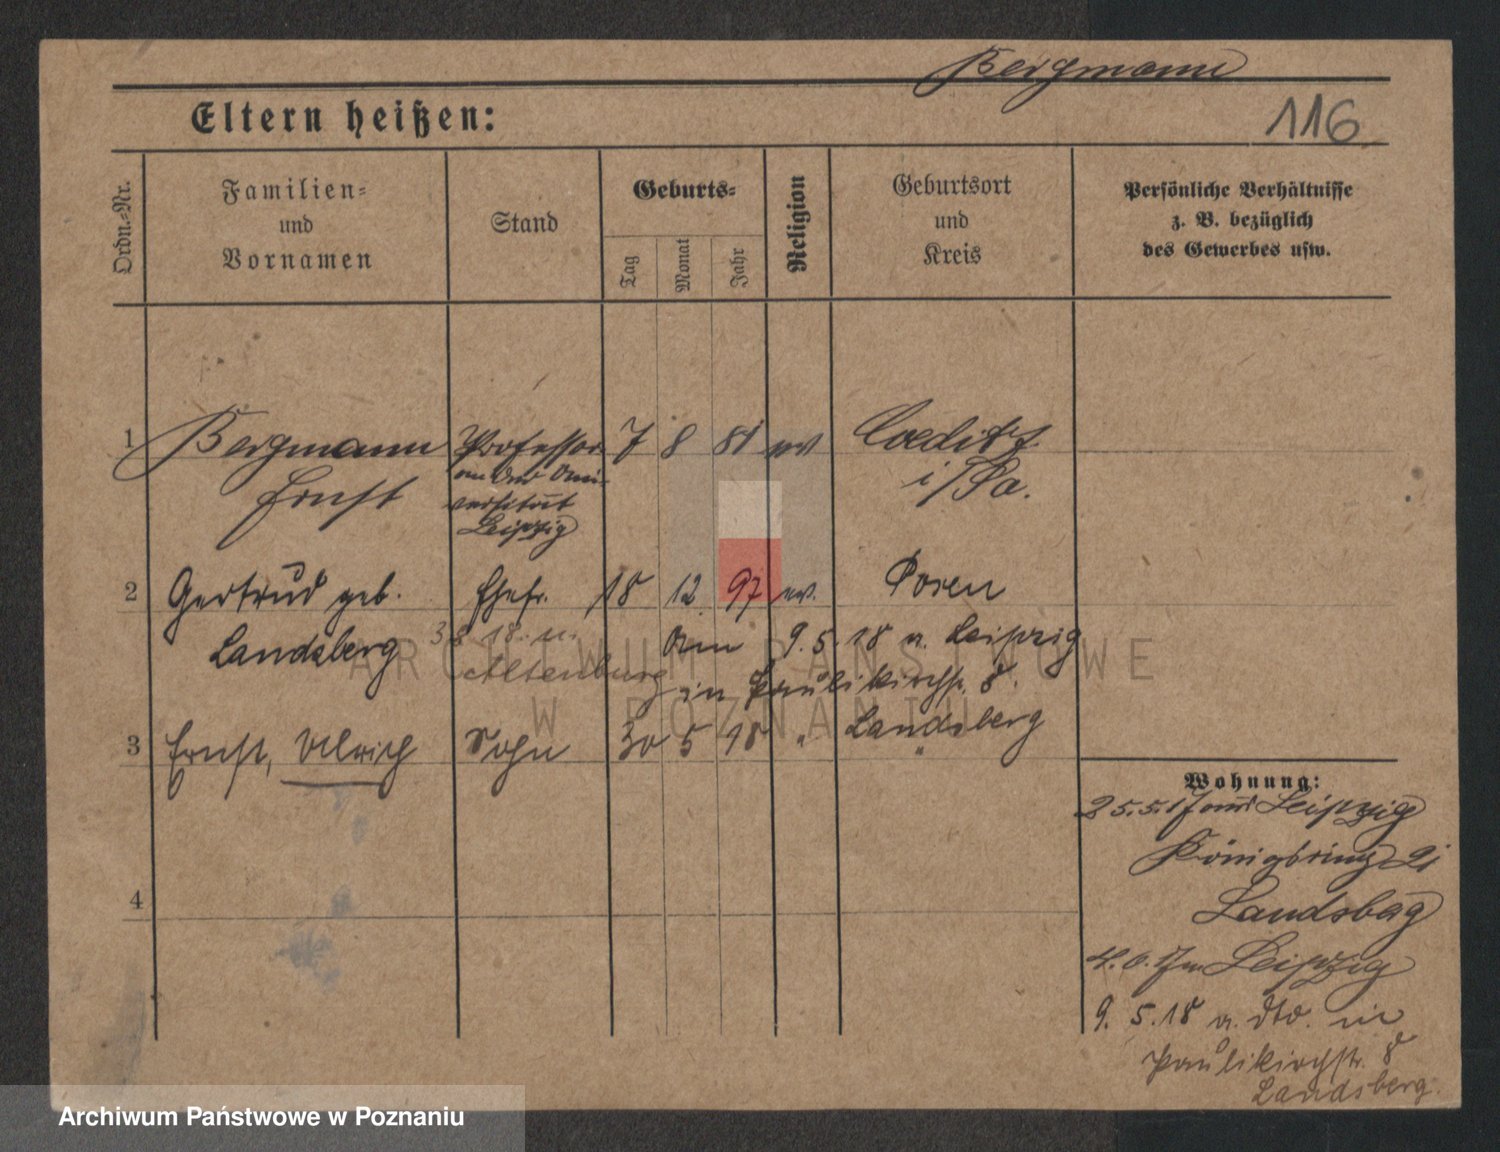 Bergmann
Eltern heißen:
116
Ordn.-Nr.
Familien-
und
Vornamen
Stand
Geburts-
Tag
Monat
Jahr
Religion
Geburtsort
und
Kreis
Persönliche Verhältnisse
z. B. bezüglich
des Gewerbes usw.
1 Bergmann Professor 7 8 81 ev Colditz
Ernst an der Uni-
versität i/Sa.
Leipzig
2 Gertrud geb. Ehefr. 18 12 97 ev. Posen
Landsberg 3.8.18. n. Am 9.5.18 v. Leipzig
Altenburg in Paulikirchstr. 8.
Landsberg
3 Ernst, Ulrich Sohn 30 5 18 " "
4
Wohnung:
25.5.17 aus Leipzig
Königsring 21
Landsberg
4.6.17 n. Leipzig
9.5.18 v. dto. in
Paulikirchstr. 8
Landsberg.
ARCHIWUM PAŃSTWOWE
W POZNANIU
Archiwum Państwowe w Poznaniu